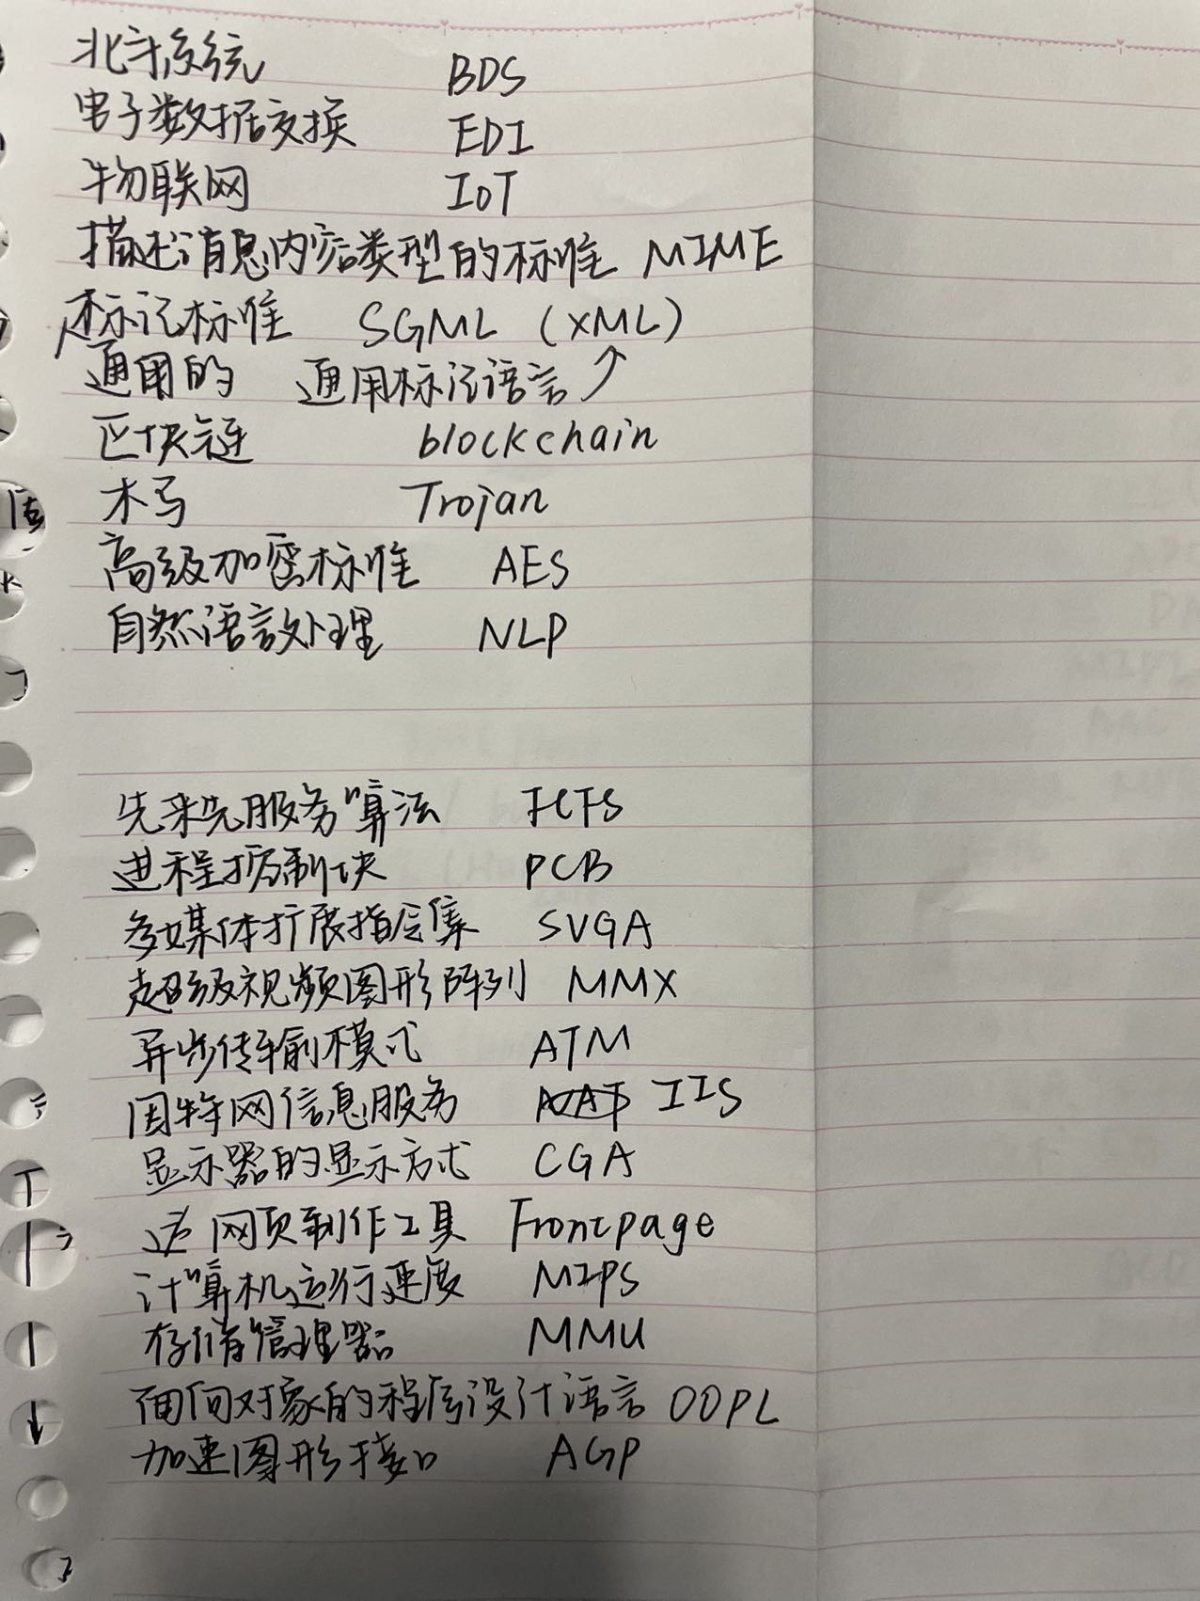 北斗系统 BDS
电子数据交换 EDI
物联网 IoT
描述消息内容类型的标准 MIME
标记标准 SGML (XML)
通用的 通用标记语言
区块链 blockchain
木马 Trojan
高级加密标准 AES
自然语言处理 NLP
先来先服务算法 FCFS
进程控制块 PCB
多媒体扩展指令集 SVGA
超级视频图形阵列 MMX
异步传输模式 ATM
因特网信息服务 IIS
显示器的显示方式 CGA
网页制作工具 Frontpage
计算机运行速度 MIPS
存储管理器 MMU
面向对象的程序设计语言 OOPL
加速图形接口 AGP